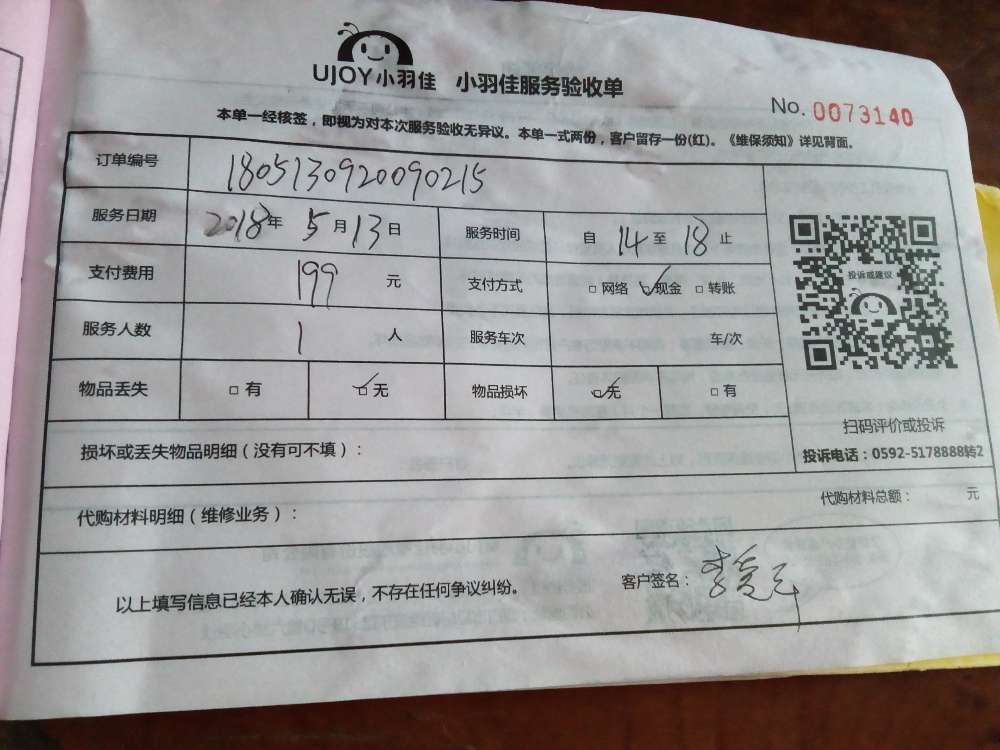 UJOY小羽佳 小羽佳服务验收单
No. 0073140
本单一经核签，即视为对本次服务验收无异议。本单一式两份，客户留存一份(红)。《维保须知》详见背面。
订单编号 1805130920090215
服务日期 2018年 5月13日 服务时间 自 14 至 18 止
支付费用 199 元 支付方式 □网络 ☑现金 □转账
服务人数 1 人 服务车次 车/次
物品丢失 □有 ☑无 物品损坏 ☑无 □有
投诉或建议
扫码评价或投诉
投诉电话：0592-5178888转2
损坏或丢失物品明细（没有可不填）：
代购材料明细（维修业务）： 代购材料总额： 元
以上填写信息已经本人确认无误，不存在任何争议纠纷。 客户签名：